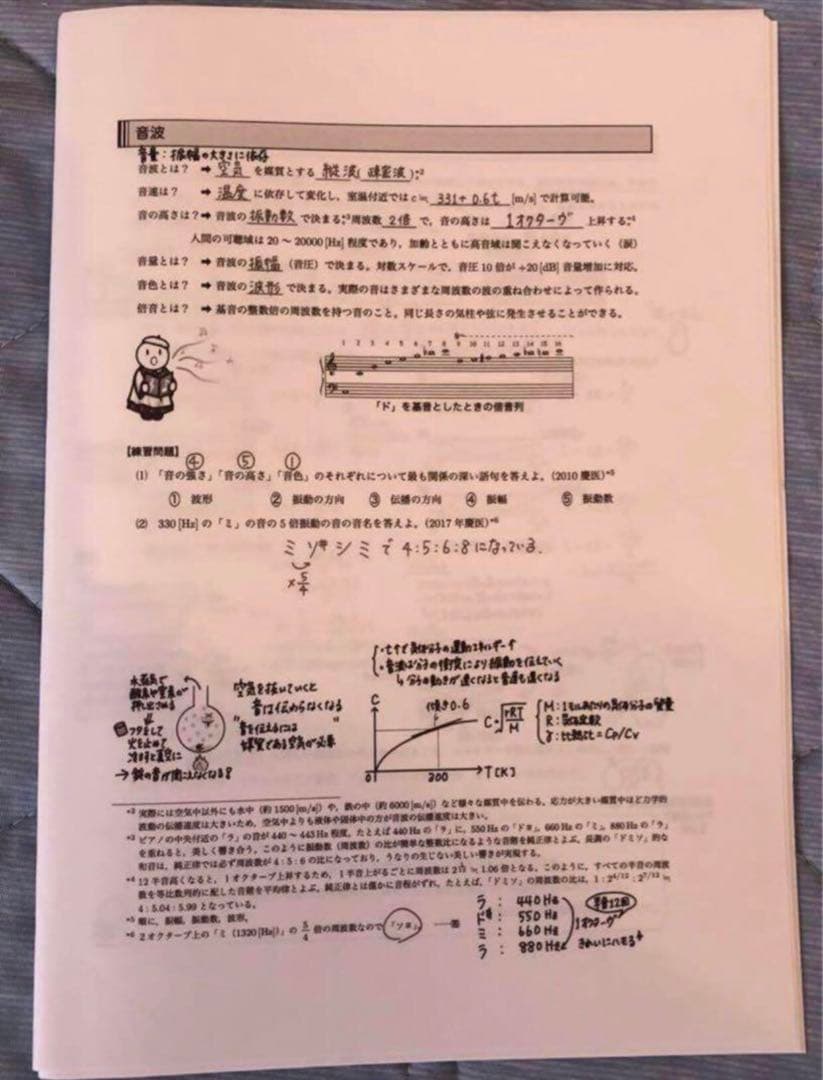 音波
音量：振幅の大きさに依存
音波とは？ ➡ 空気 を媒質とする 縦波(疎密波)。*2
音速は？ ➡ 温度 に依存して変化し，室温付近では c≒ 331+0.6t [m/s] で計算可能。
音の高さは？➡ 音波の 振動数 で決まる。*3周波数 2倍 で，音の高さは 1オクターヴ 上昇する。*4
人間の可聴域は 20 ～ 20000 [Hz] 程度であり，加齢とともに高音域は聞こえなくなっていく（涙）
音量とは？ ➡ 音波の 振幅 （音圧）で決まる。対数スケールで，音圧 10 倍が +20 [dB] 音量増加に対応。
音色とは？ ➡ 音波の 波形 で決まる。実際の音はさまざまな周波数の波の重ね合わせによって作られる。
倍音とは？ ➡ 基音の整数倍の周波数を持つ音のこと。同じ長さの気柱や弦に発生させることができる。
1 2 3 4 5 6 7 8 9 10 11 12 13 14 15 16
「ド」を基音としたときの倍音列
【練習問題】
④ ⑤ ①
(1) 「音の強さ」「音の高さ」「音色」のそれぞれについて最も関係の深い語句を答えよ。（2010 慶医）*5
① 波形 ② 振動の方向 ③ 伝播の方向 ④ 振幅 ⑤ 振動数
(2) 330 [Hz] の「ミ」の音の 5 倍振動の音の音名を答えよ。（2017 年慶医）*6
ミ ソ# シ ミ で 4:5:6:8 になっている.
×5/4
水蒸気で
酸素や窒素が
押し出される
フタをして
火を止めて
冷ますと真空に
→ 鈴の音が聞こえなくなる?
空気を抜いていくと
音は伝わらなくなる
"音を伝えるには
媒質である空気が必要"
・気体分子の運動エネルギー
・音波は分子の衝突により振動を伝えていく
↳ 分子の動きが速くなると音速も速くなる
C
傾き0.6
C=√γRT/M
0
300
T[K]
M：1モルあたりの気体分子の質量
R：気体定数
γ：比熱比 = Cp/Cv
*2 実際には空気中以外にも水中（約 1500 [m/s]）や，鉄の中（約 6000 [m/s]）など様々な媒質中を伝わる。応力が大きい媒質中ほど力学的
波動の伝播速度は大きいため，空気中よりも液体や固体中の方が音波の伝播速度は大きい。
*3 ピアノの中央付近の「ラ」の音が 440 ～ 443 Hz 程度。たとえば 440 Hz の「ラ」に，550 Hz の「ド#」，660 Hz の「ミ」，880 Hz の「ラ」
を重ねると，美しく響き合う。このように振動数（周波数）の比が簡単な整数比になるような音階を純正律とよぶ。長調の「ドミソ」的な
和音は，純正律では必ず周波数が 4 : 5 : 6 の比になっており，うなりの生じない美しい響きが実現する。
*4 12 半音高くなると，1 オクターブ上昇するため，1 半音上がるごとに周波数は 2^1/12 ≒ 1.06 倍となる。このように，すべての半音の周波
数を等比数列的に配した音階を平均律とよぶ。純正律とは僅かに音程がずれ，たとえば，「ドミソ」の周波数の比は，1 : 2^4/12 : 2^7/12 ≒
4 : 5.04 : 5.99 となっている。
*5 順に，振幅，振動数，波形。
*6 2 オクターブ上の「ミ（1320 [Hz]）」の 5/4 倍の周波数なので「ソ#」
ラ : 440 Hz
ド# : 550 Hz
ミ : 660 Hz
ラ : 880 Hz
半音12回
1オクターヴ
きれいにハモる